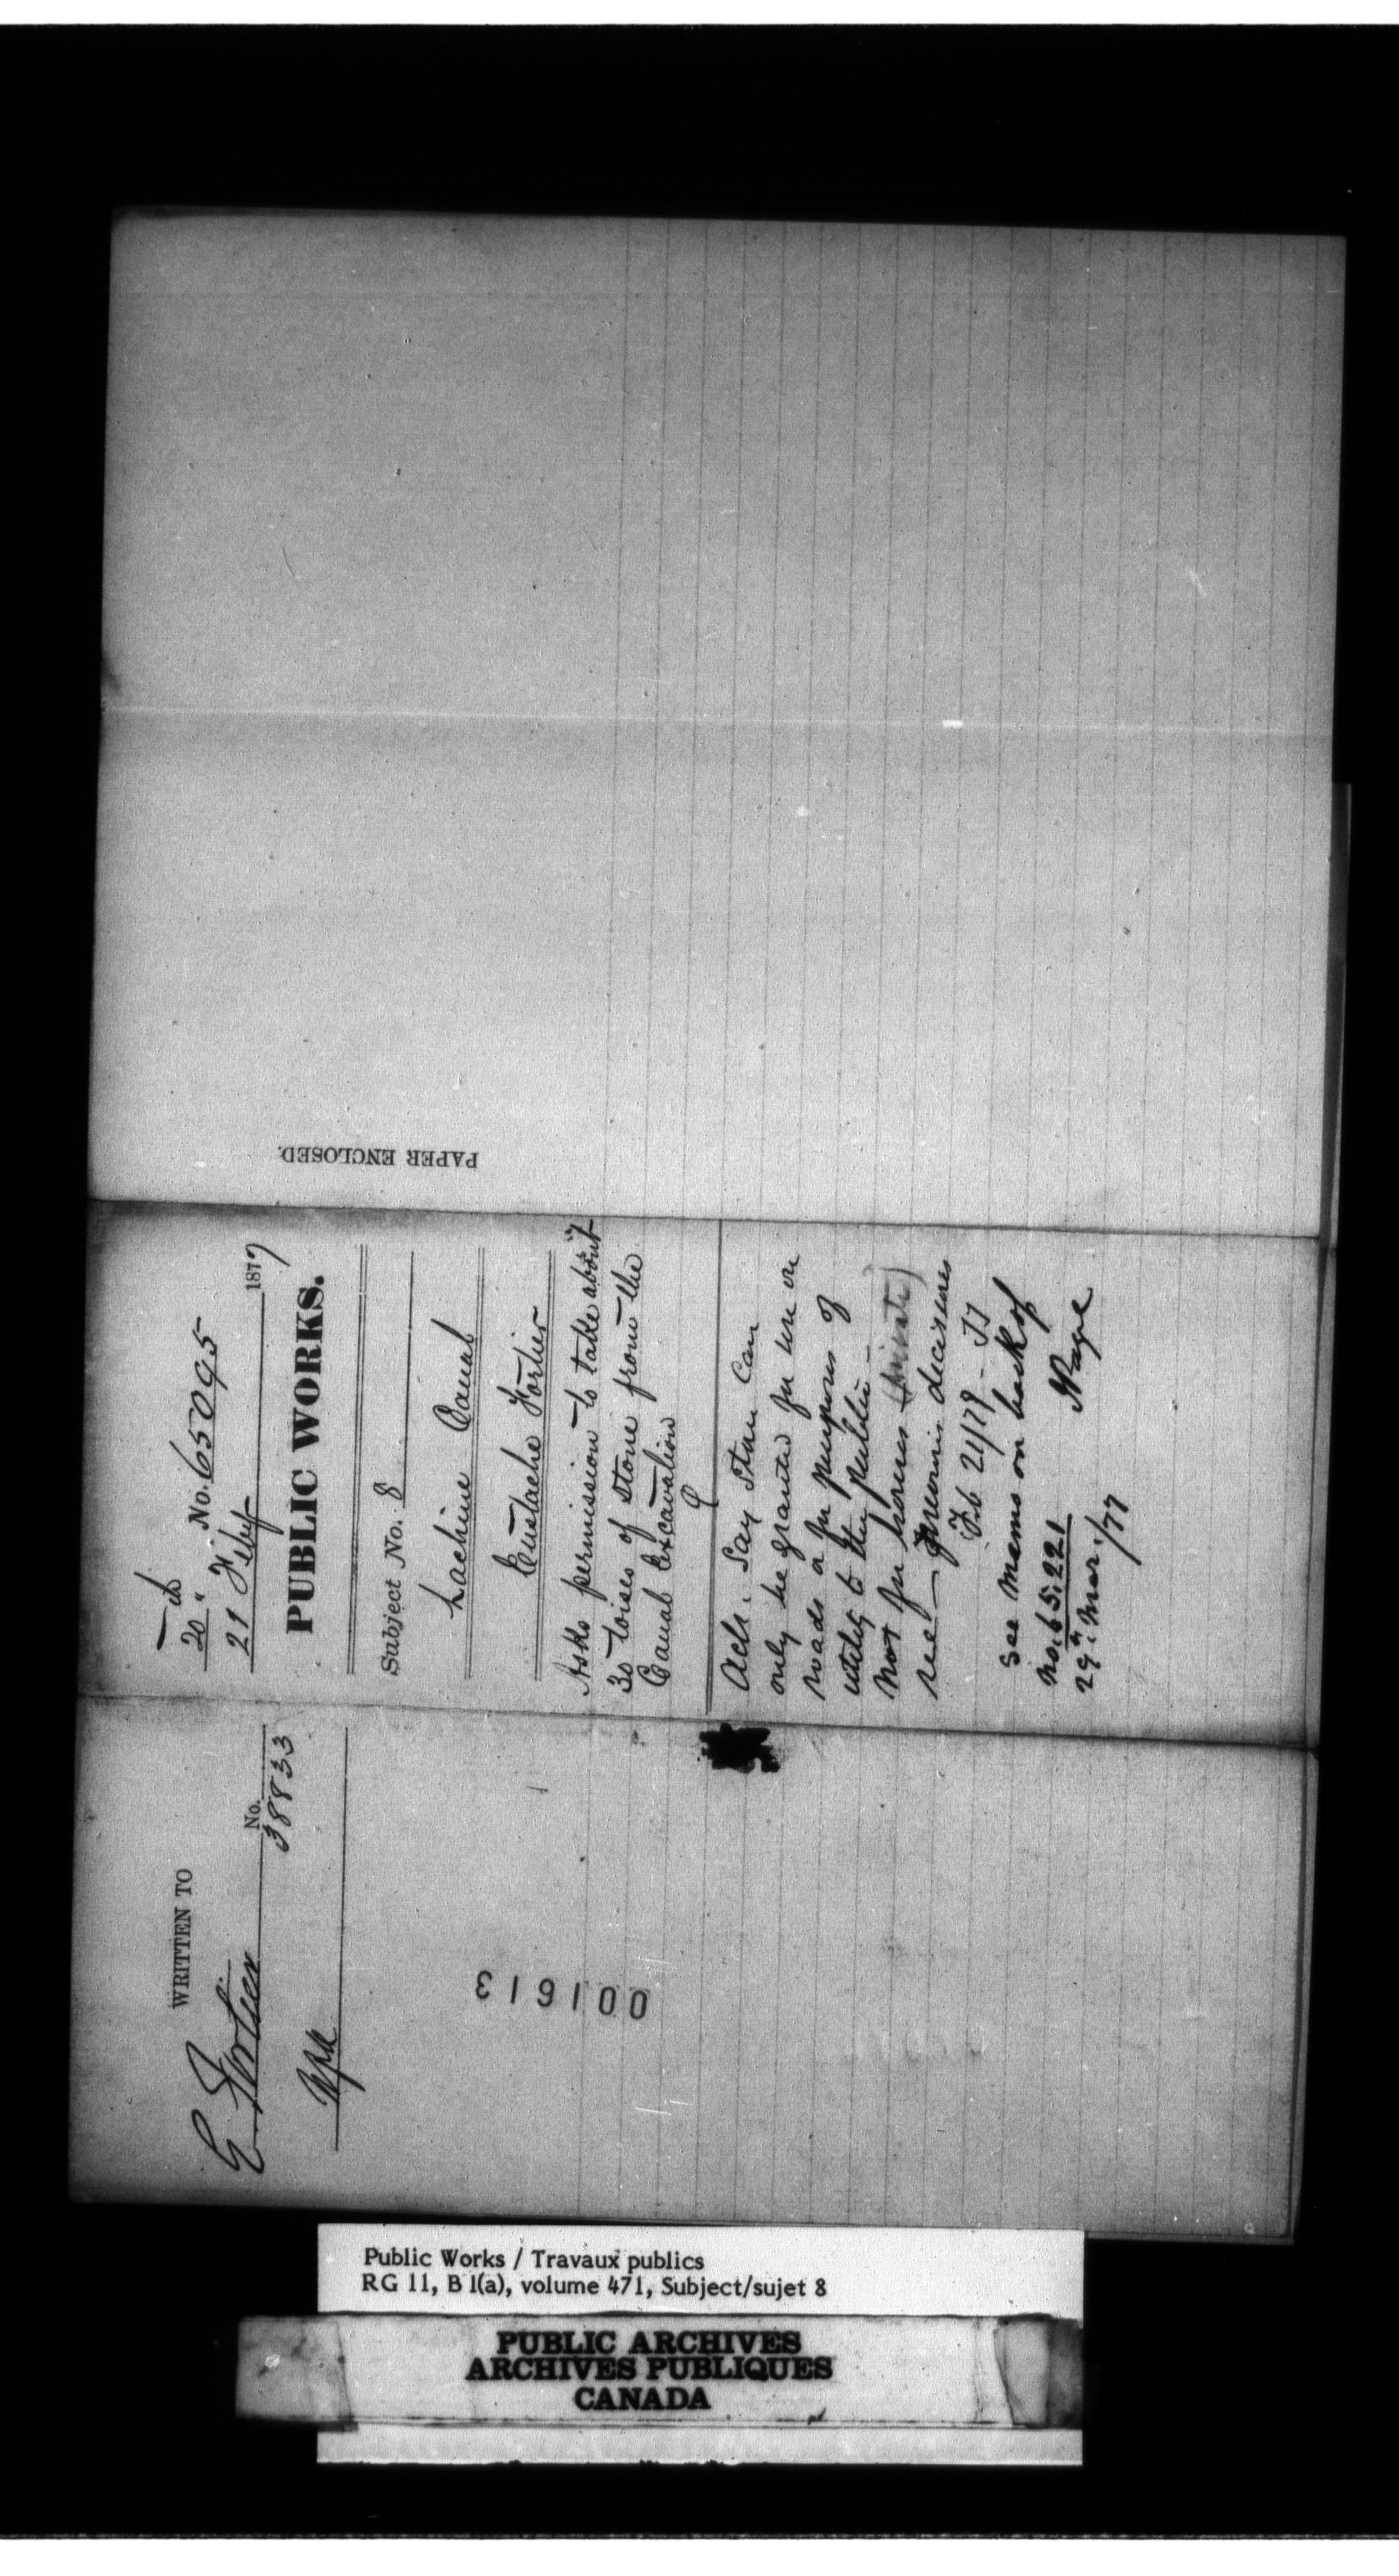 PAPER ENCLOSED.
20th No. 65095
21 Feby 1877
PUBLIC WORKS.
Subject No. 8
Lachine Canal
Eustache Fortier
Asks permission to take about
30 toises of stone from the
Canal Excavation
Ack. Say Stone can
only be granted for use on
roads or for purposes of
utility to the public -
not for houses (private)
see previous decisions
Fb. 21/77
See memo on back of
No. 65,221
29th Mar./77
Page
WRITTEN TO
No.
E. Fortier 38833
001613
Public Works / Travaux publics
RG 11, B 1(a), volume 471, Subject/sujet 8
PUBLIC ARCHIVES
ARCHIVES PUBLIQUES
CANADA